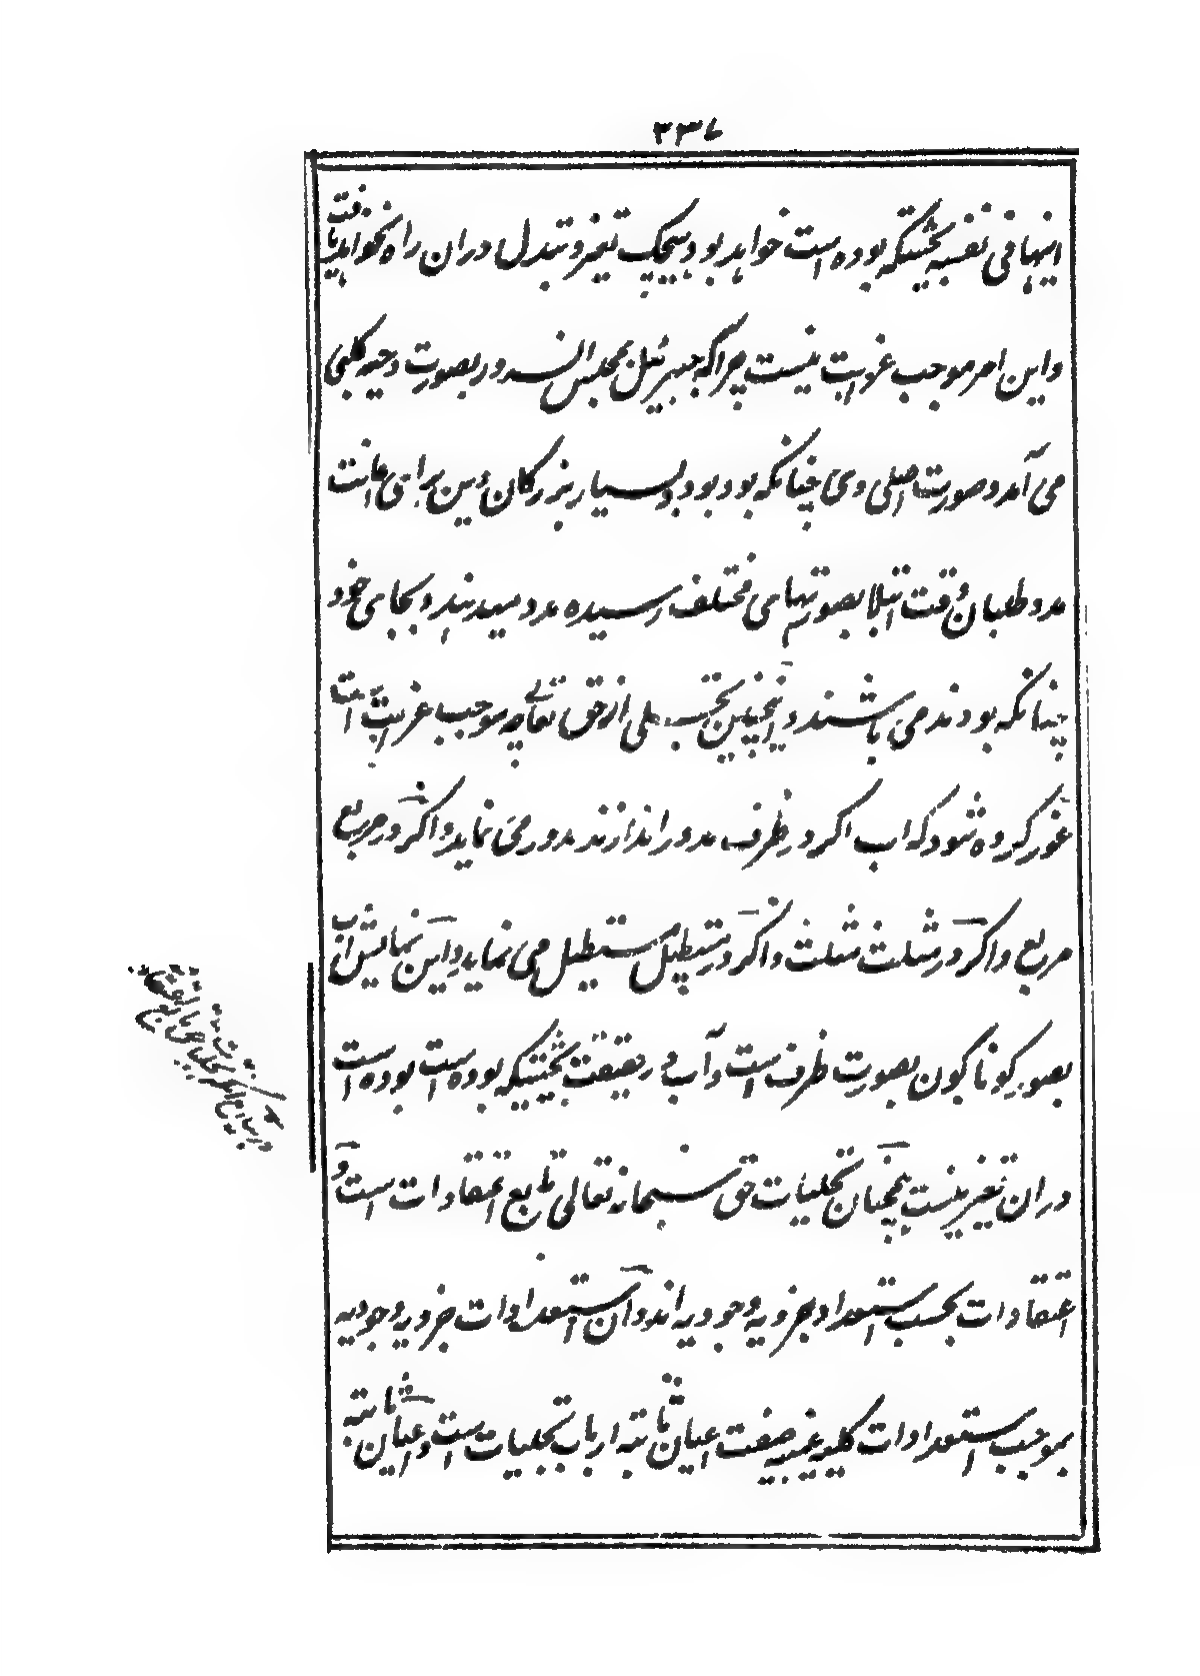 ۳۳۷
اینها فی نفسه بحیثیتیکه بوده است خواهد بود و هیچیک تغیر و تبدل دران راه نخواهد یافت
و این امر موجب غرابت نیست چرا که جبرئیل بمجلس السرور بصورت دحیه کلبی
می آمد و صورت اصلی وی چنانکه بود بود و بسیار بزرگان دین برای اعانت
مدد طلبان وقت ابتلا بصورتهای مختلف رسیده مدد میدهند و بجای خود
چنانکه بودند می باشند و اینچنین تجلی از حق تعالی چه موجب غرابت است
غور کرده شود که اب اگر در ظرف مدور اندازند مدور می نماید و اگر در مربع
مربع و اگر در مثلث مثلث و اگر در مستطیل مستطیل می نماید و این نمایش اب
بصور گوناگون بصورت ظرف است و آب در حقیقت بحیثیتیکه بوده است بوده است
دران تغیر نیست همچنان تجلیات حق سبحانه تعالی تابع اعتقادات است و
اعتقادات بحسب استعداد جزویه وجودیه اند و آن استعدادات جزویه وجودیه
بموجب استعدادات کلیه غیبیه صفت اعیان ثابته ارباب تجلیات است و اعیان ثابته